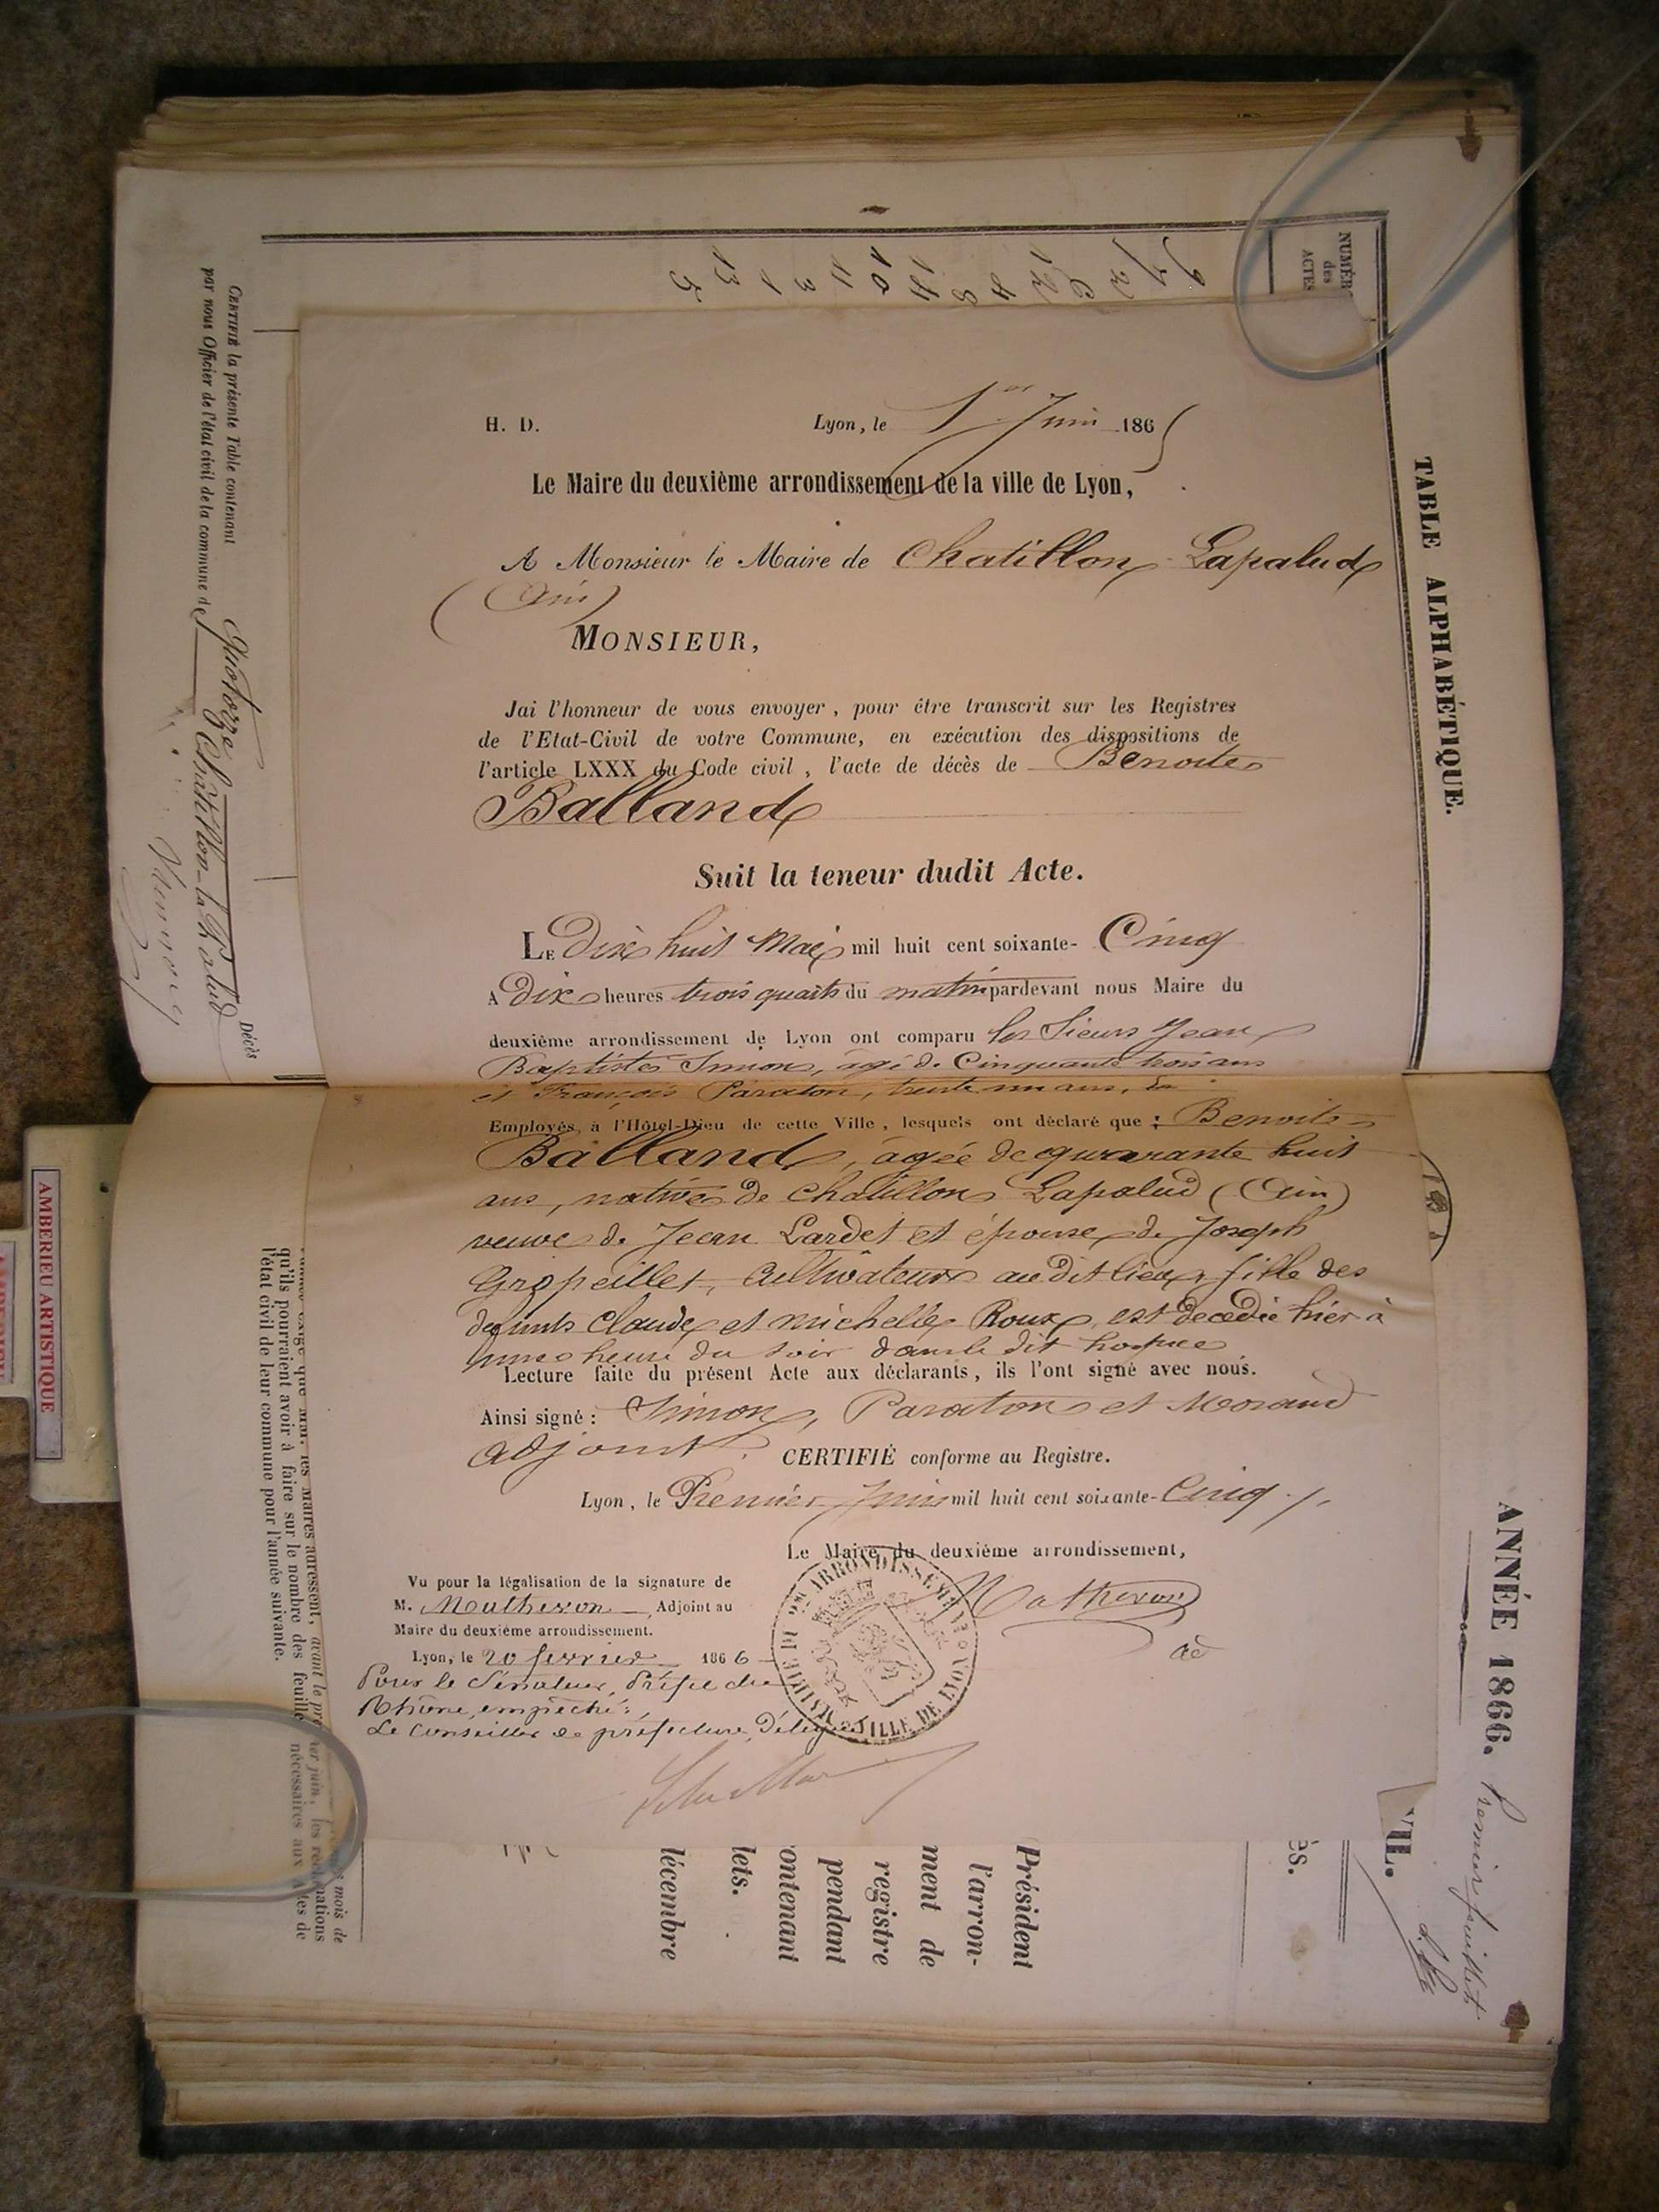 H. D. Lyon, le 1er Juin 1865
Le Maire du deuxième arrondissement de la ville de Lyon,
A Monsieur le Maire de Chatillon Lapalud
(Ain)
MONSIEUR,
Jai l'honneur de vous envoyer, pour être transcrit sur les Registres
de l'Etat-Civil de votre Commune, en exécution des dispositions de
l'article LXXX du Code civil, l'acte de décès de Benoite
Balland
Suit la teneur dudit Acte.
LE Dix huit Mai mil huit cent soixante- Cinq
A Dix heures trois quarts du matin pardevant nous Maire du
deuxième arrondissement de Lyon ont comparu les Sieurs Jean
Baptiste Simon, âgé de Cinquante trois ans
et François Paraton, trente un ans,
Employés à l'Hôtel-Dieu de cette Ville, lesquels ont déclaré que : Benoite
Balland, âgée de quarante huit
ans, native de Chatillon Lapalud (Ain)
veuve de Jean Lardet et épouse de Joseph
Gropeillet, Cultivateur audit lieu, fille des
defunts Claude et Michelle Roux, est décédée hier à
une heure du soir dans le dit hospice
Lecture faite du présent Acte aux déclarants, ils l'ont signé avec nous.
Ainsi signé : Simon, Paraton et Morand
adjoint. CERTIFIÉ conforme au Registre.
Lyon, le Premier Juin mil huit cent soixante- Cinq
Le Maire du deuxième arrondissement,
Vu pour la légalisation de la signature de
M. Matheron, Adjoint au
Maire du deuxième arrondissement.
Lyon, le 20 fevrier 1866
Pour le Sénateur, Préfet du
Rhône, empêché,
Le Conseiller de préfecture Délégué
Matheron
ad
MAIRIE DU 2me ARRONDISSEMENT
VILLE DE LYON
NUMÉR
des
ACTES
TABLE ALPHABÉTIQUE.
ANNÉE 1866.
Premier feuillet
CERTIFIÉ la présente Table contenant Quatorze Décès
par nous Officier de l'état civil de la commune de Chatillon-la-Palud
qu'ils pourraient avoir à faire sur le nombre des feuille nécessaires aux
l'état civil de leur commune pour l'année suivante.
AMBERIEU ARTISTIQUE
Président
l'arron-
ment de
registre
pendant
ontenant
lets.
lécembre